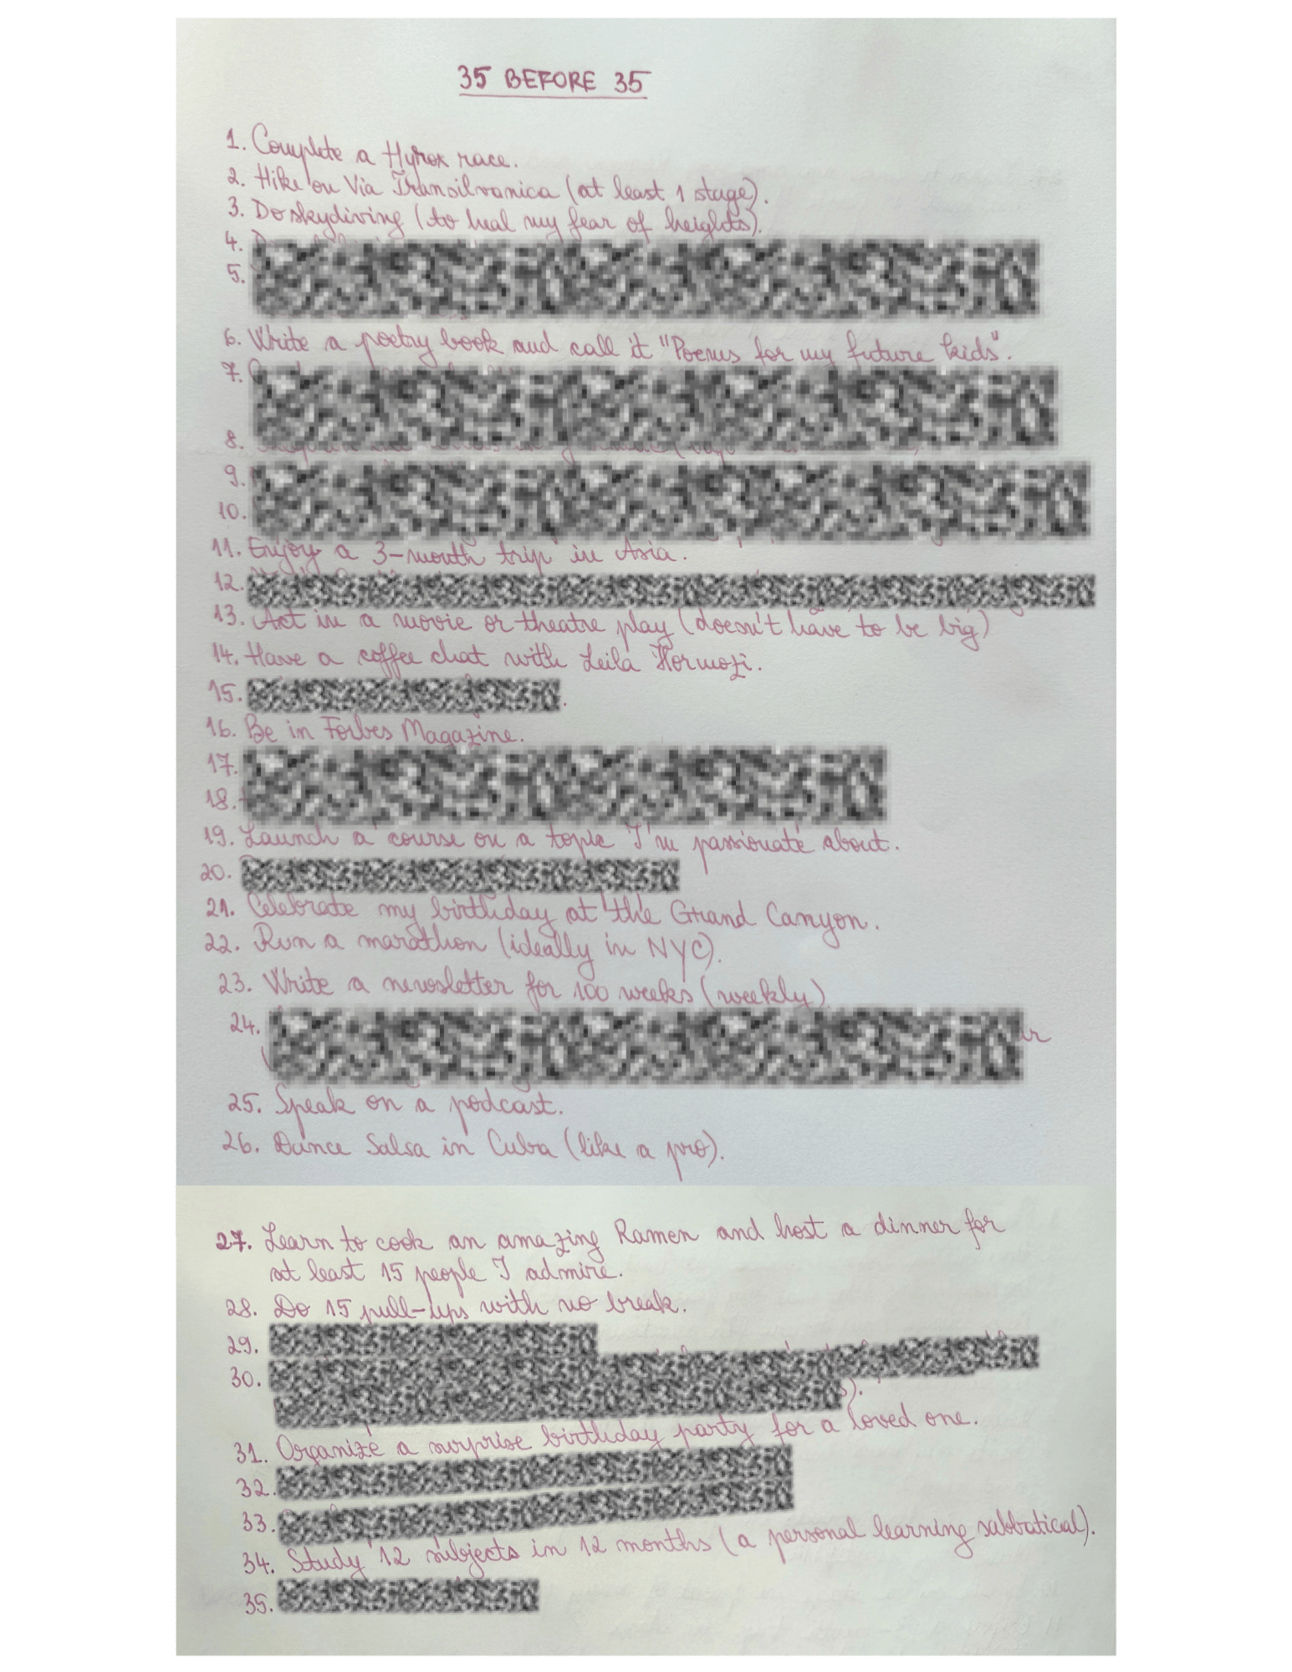 35 BEFORE 35
1. Complete a Hyrox race.
2. Hike on Via Transilvanica (at least 1 stage).
3. Do skydiving (to heal my fear of heights).
4.
5.
6. Write a poetry book and call it "Poems for my future kids".
7.
8.
9.
10.
11. Enjoy a 3-month trip in Asia.
12.
13. Act in a movie or theatre play (doesn't have to be big)
14. Have a coffee chat with Leila Hormozi.
15.
16. Be in Forbes Magazine.
17.
18.
19. Launch a course on a topic I'm passionate about.
20.
21. Celebrate my birthday at the Grand Canyon.
22. Run a marathon (ideally in NYC).
23. Write a newsletter for 100 weeks (weekly)
24.
25. Speak on a podcast.
26. Dance Salsa in Cuba (like a pro).
27. Learn to cook an amazing Ramen and host a dinner for
at least 15 people I admire.
28. Do 15 pull-ups with no break.
29.
30.
31. Organize a surprise birthday party for a loved one.
32.
33.
34. Study 12 subjects in 12 months (a personal learning sabbatical).
35.